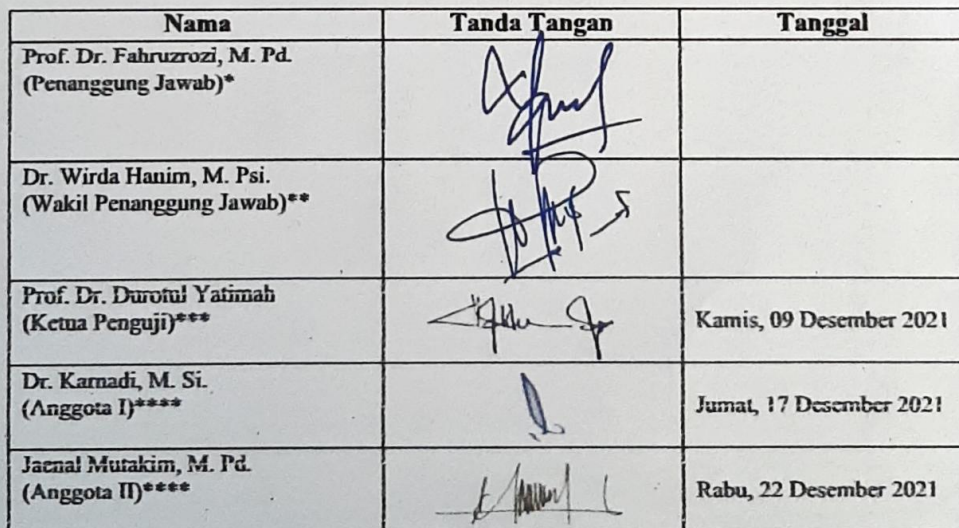 Nama Tanda Tangan Tanggal
Prof. Dr. Fahruzrozi, M. Pd.
(Penanggung Jawab)*
Dr. Wirda Hanim, M. Psi.
(Wakil Penanggung Jawab)**
Prof. Dr. Durotul Yatimah
(Ketua Penguji)***
Kamis, 09 Desember 2021
Dr. Karnadi, M. Si.
(Anggota I)****
Jumat, 17 Desember 2021
Jaenal Mutakim, M. Pd.
(Anggota II)****
Rabu, 22 Desember 2021